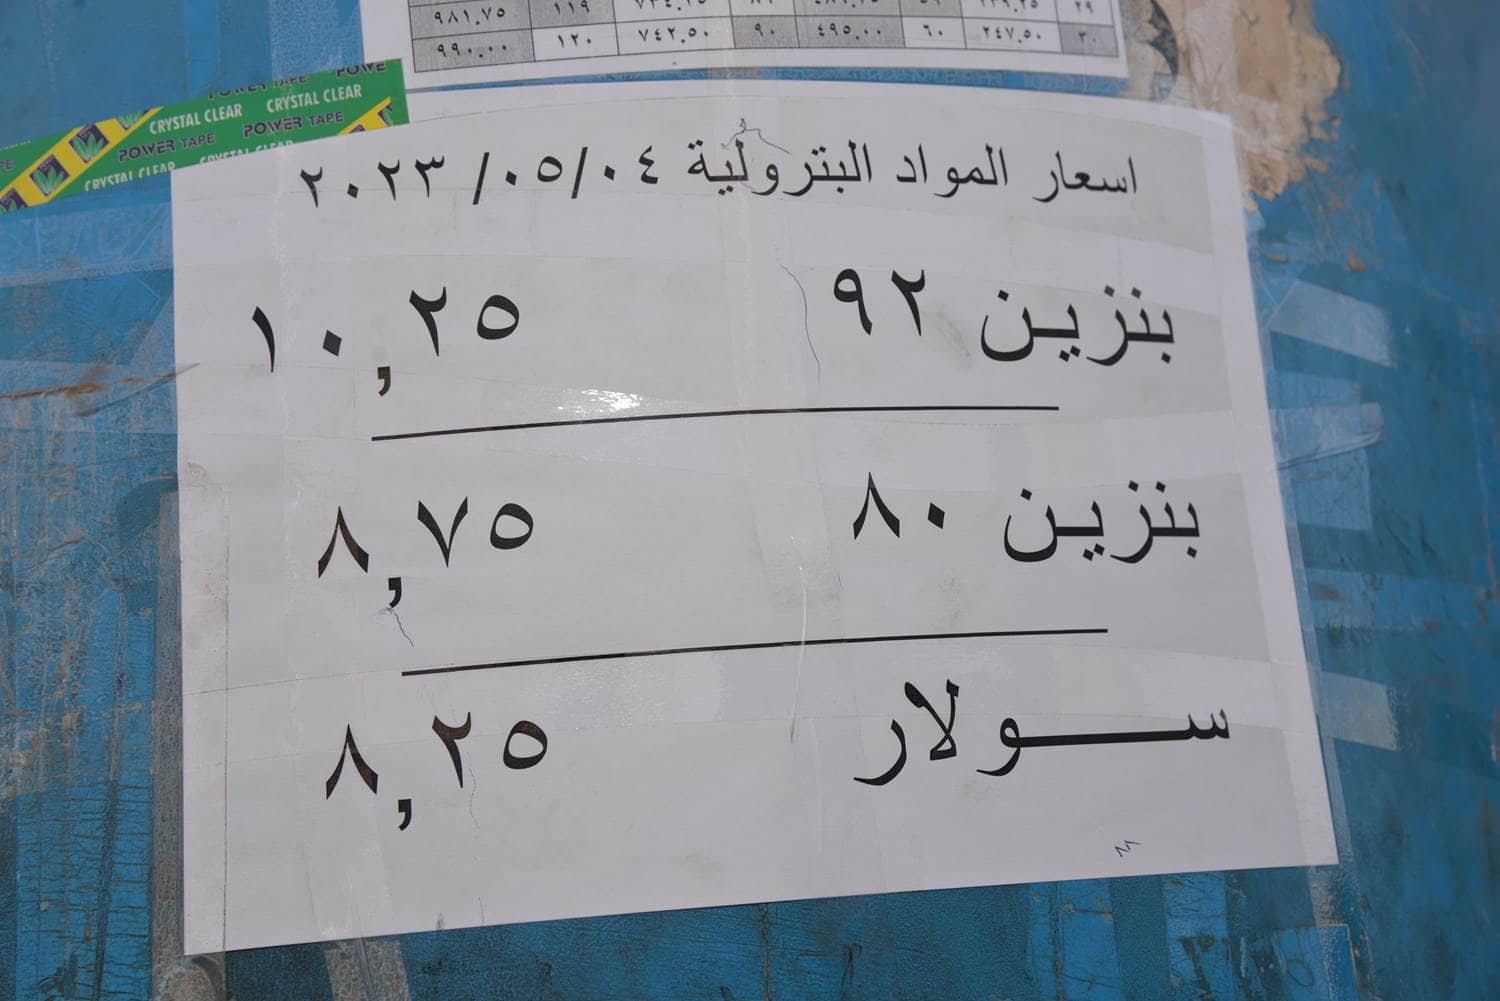 ٩٨١,٧٥ ١١٩
٩٩٠,٠٠ ١٢٠ ٧٤٢,٥٠ ٩٠ ٤٩٥,٠٠ ٦٠ ٢٤٧,٥٠ ٣٠
CRYSTAL CLEAR CRYSTAL CLEAR
POWER TAPE POWER TAPE
CRYSTAL CLEAR CRYSTAL CLEAR
اسعار المواد البترولية ٠٥/٠٤/ ٢٠٢٣
بنزين ٩٢ ١٠,٢٥
بنزين ٨٠ ٨,٧٥
ســـــولار ٨,٢٥